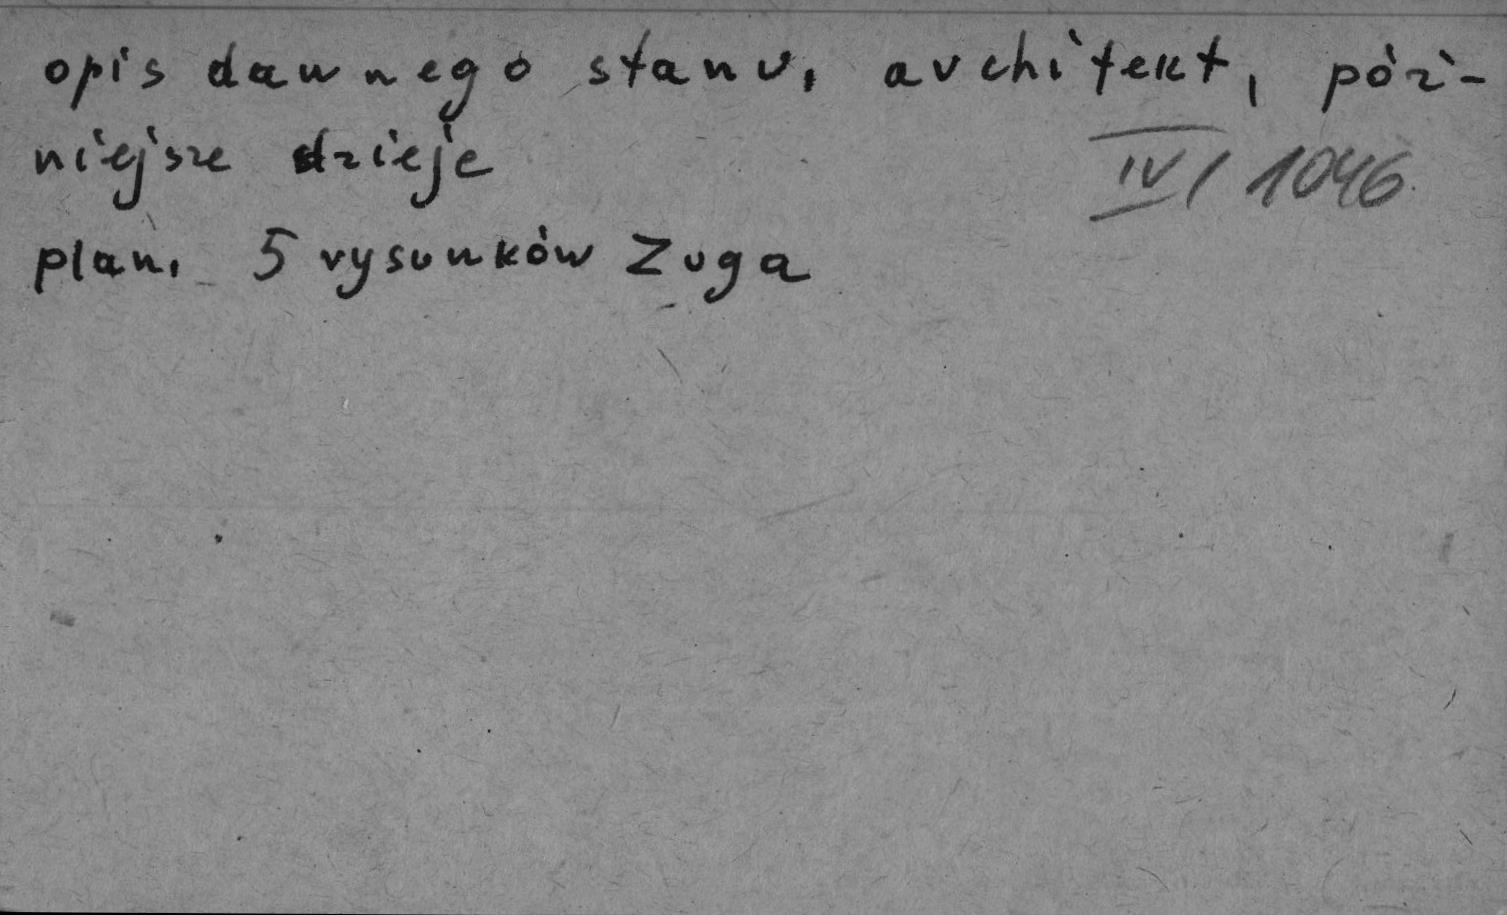 opis dawnego stanu, architekt, póź-
niejsze dzieje
IV/1046
plan, 5 rysunków Zuga